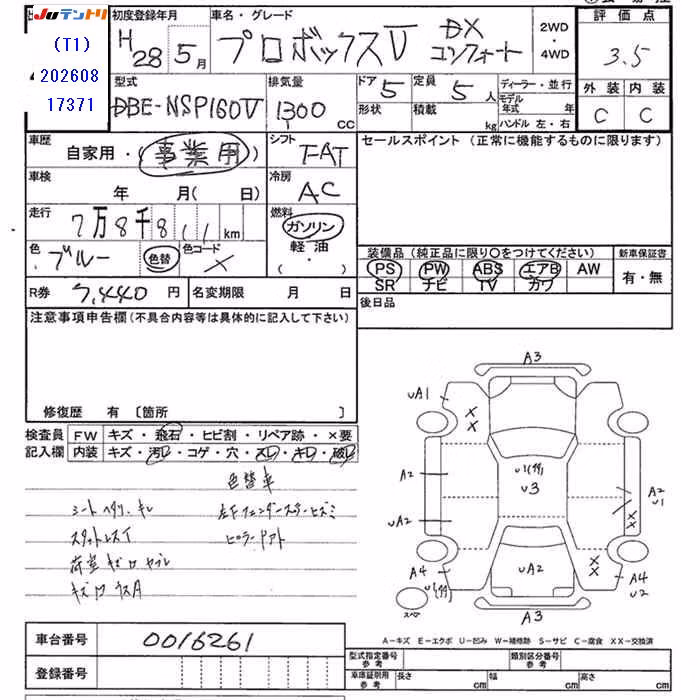 JUテントリ
(T1)
202608
17371
初度登録年月
H28 5月
車名・グレード
プロボックスV DX コンフォート
2WD
・
4WD
評価点
3.5
外装 内装
C C
型式
DBE-NSP160V
排気量
1300 cc
ドア 5
形状
定員 5人
積載 kg
ディーラー・並行
モデル年式 年
ハンドル 左・右
車歴
自家用・(事業用)
シフト
F-AT
セールスポイント (正常に機能するものに限ります)
車検
年 月( 日)
冷房
AC
走行
7万8千8 1 1 km
燃料
ガソリン
軽油
( ・ )
色
ブルー
色替
色コード
装備品 (純正品に限り○をつけてください)
新車保証書
PS PW ABS エアB AW
有・無
SR ナビ TV カワ
R券 7,440 円
名変期限 月 日
後日品
注意事項申告欄 (不具合内容等は具体的に記入して下さい)
修復歴 有 〔箇所 〕
検査員 FW キズ・飛石・ヒビ割・リペア跡・×要
記入欄 内装 キズ・汚レ・コゲ・穴・スレ・キレ・破レ
色替車
シートヘタリ、キレ
荷室キズ
A3
uA1
XX
A2
uA2
A4
u3
uA2
A2
u1
XX
XX
A4
u2
A3
スペア
A-キズ E-エクボ U-凹み W-補修跡 S-サビ C-腐食 XX-交換済
車台番号 0016261
登録番号
型式指定番号 参考
類別区分番号 参考
車庫証明用 参考 長さ cm 幅 cm 高さ cm